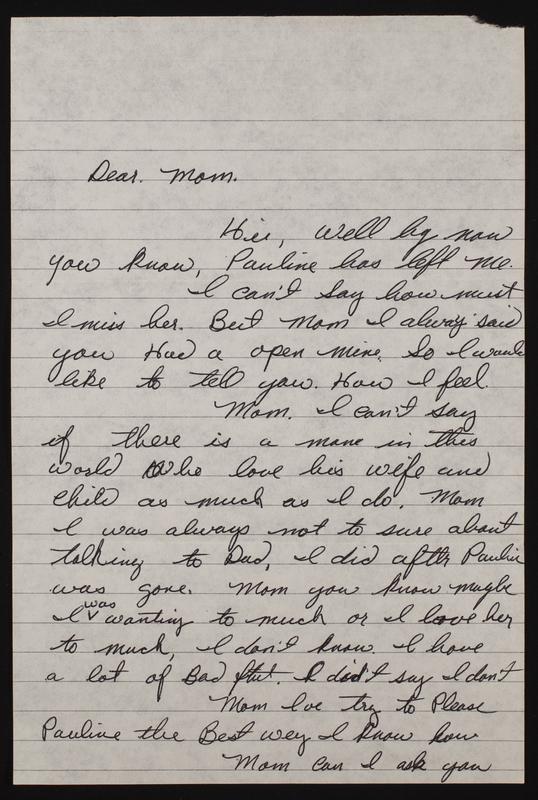 Dear. Mom.
Hii, well by now
you know, Pauline has left me.
I can't say how must
I miss her. But Mom I alway said
you Had a open mine. So I would
like to tell you. How I feel.
Mom. I can't say
if there is a mane in this
world who love his wife and
child as much as I do. Mom
I was always not to sure about
talking to Dad, I did after Pauline
was gone. Mom you know maybe
I was wanting to much or I love her
to much, I don't know. I have
a lot of Bad I didn't say I don't
Mom I've try to Please
Pauline the Best wey I know how
Mom can I ask you